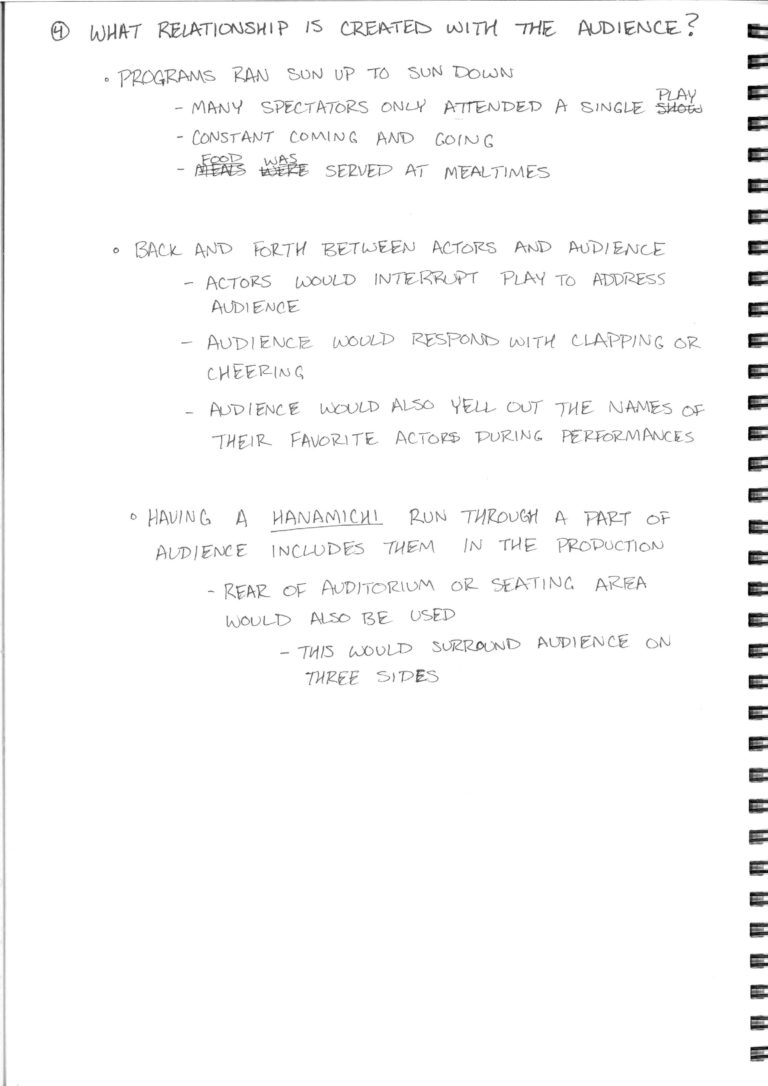 ④ WHAT RELATIONSHIP IS CREATED WITH THE AUDIENCE?
• PROGRAMS RAN SUN UP TO SUN DOWN
- MANY SPECTATORS ONLY ATTENDED A SINGLE ~~SHOW~~ PLAY
- CONSTANT COMING AND GOING
- ~~MEALS~~ FOOD ~~WERE~~ WAS SERVED AT MEALTIMES
• BACK AND FORTH BETWEEN ACTORS AND AUDIENCE
- ACTORS WOULD INTERRUPT PLAY TO ADDRESS
AUDIENCE
- AUDIENCE WOULD RESPOND WITH CLAPPING OR
CHEERING
- AUDIENCE WOULD ALSO YELL OUT THE NAMES OF
THEIR FAVORITE ACTORS DURING PERFORMANCES
• HAVING A HANAMICHI RUN THROUGH A PART OF
AUDIENCE INCLUDES THEM IN THE PRODUCTION
- REAR OF AUDITORIUM OR SEATING AREA
WOULD ALSO BE USED
- THIS WOULD SURROUND AUDIENCE ON
THREE SIDES